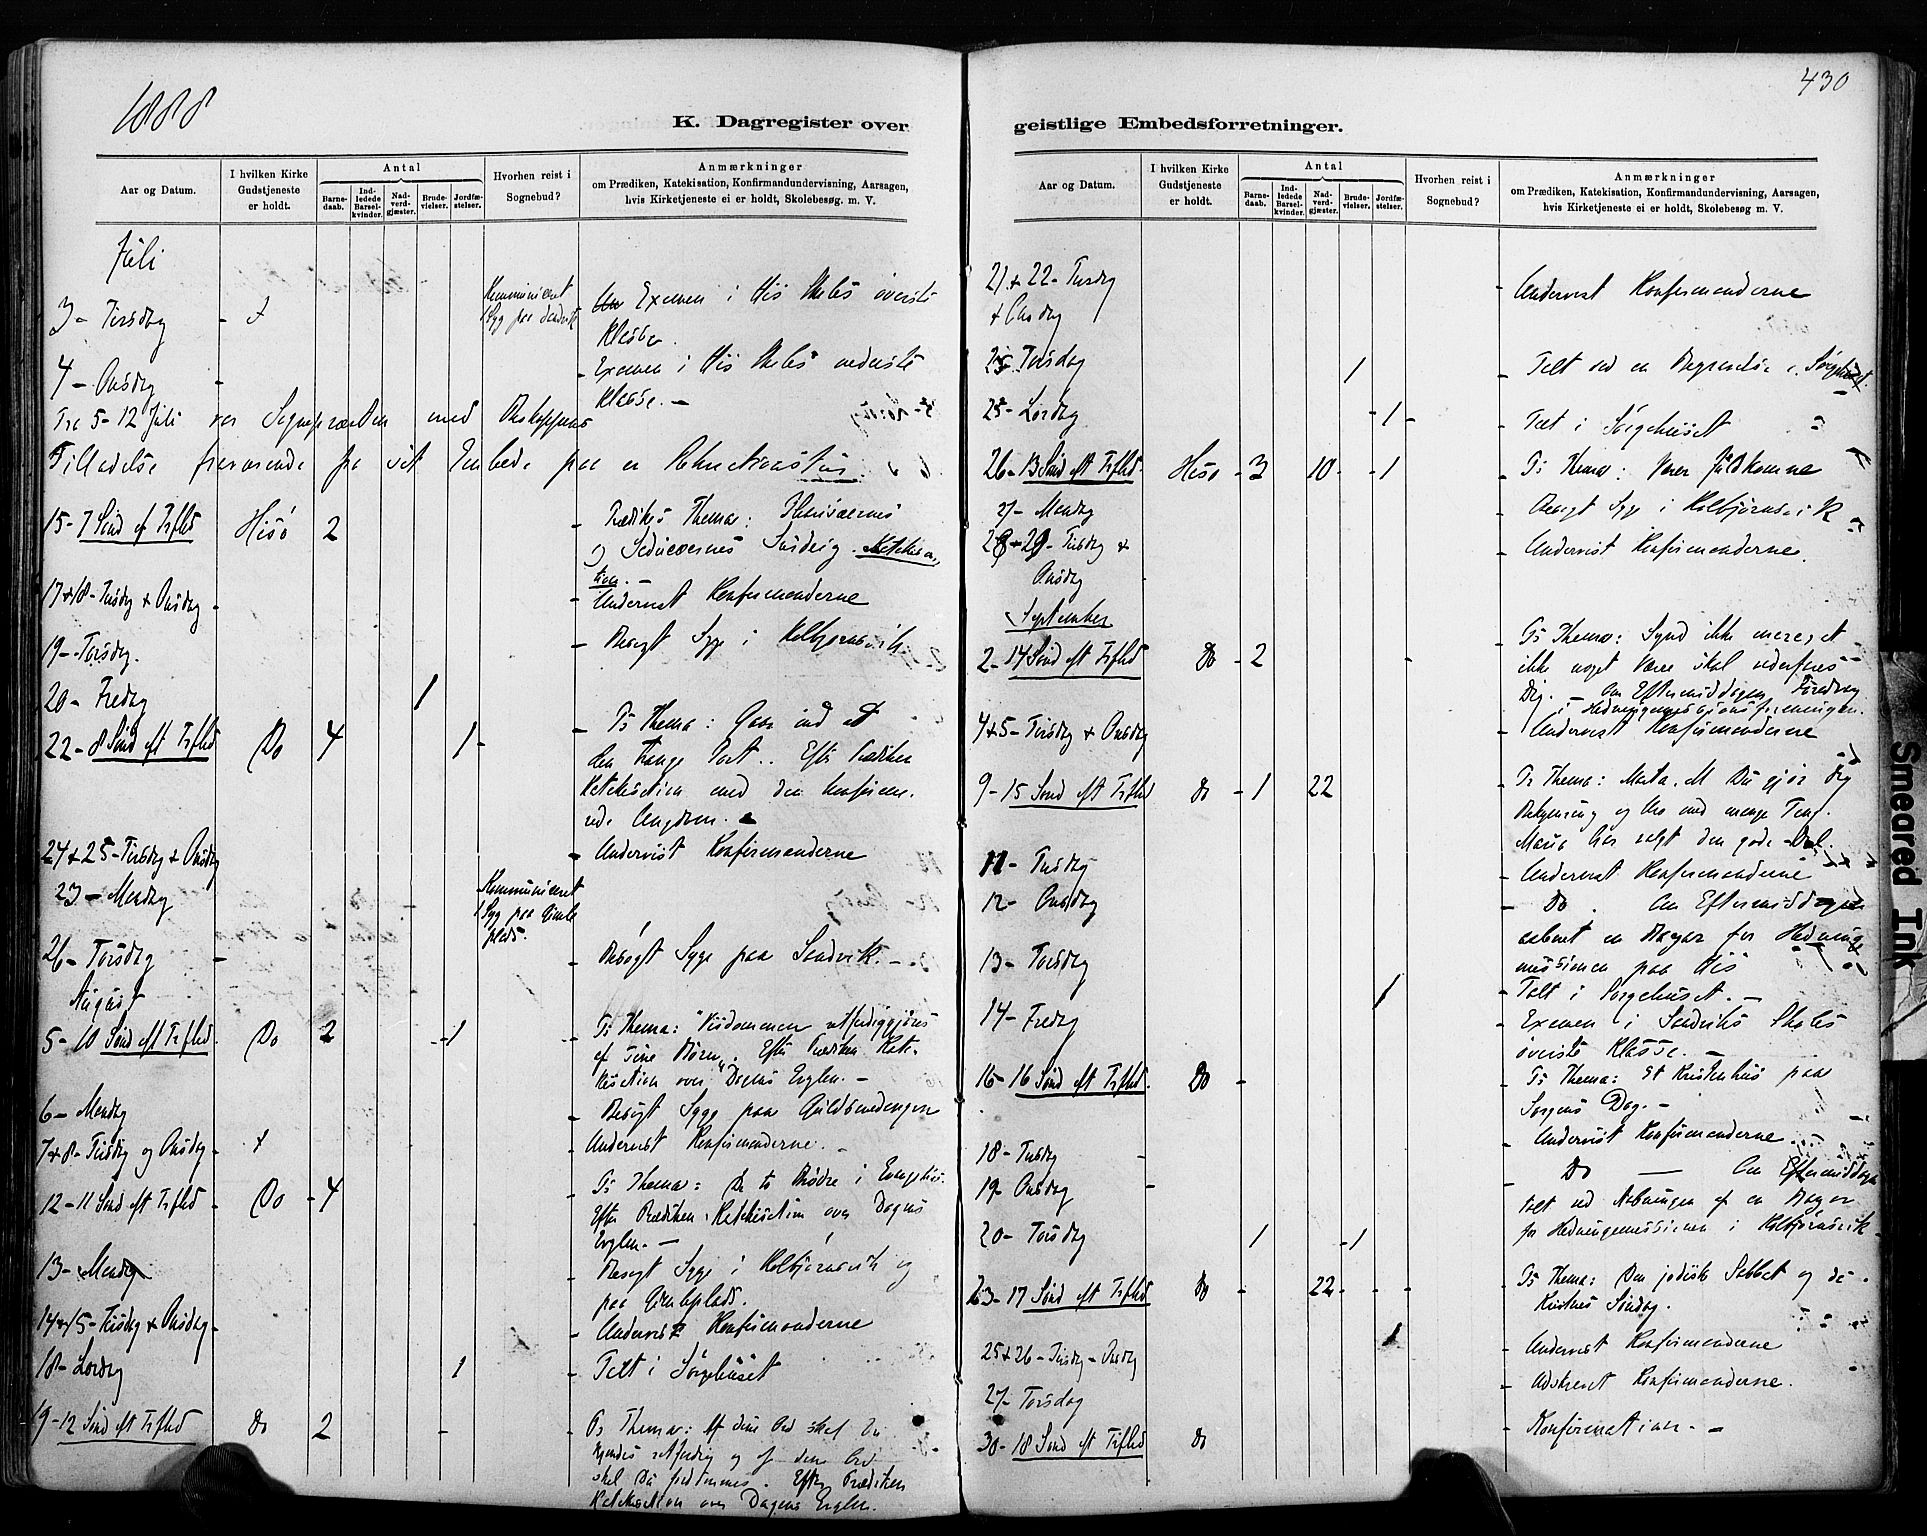 1888
K. Dagregister over
Aar og Datum.
I hvilken Kirke Gudstjeneste er holdt.
Antal
Barne-daab.
Ind-ledede Barsel-kvinder.
Nad-verd-gjæster.
Brude-vielser.
Jordfæ-stelser.
Hvorhen reist i Sognebud?
Anmærkninger
om Prædiken, Katekisation, Konfirmandundervisning, Aarsagen,
hvis Kirketjeneste ei er holdt, Skolebesøg m. V.
Juli
3 - Tirsdag - Kommuniceret 1 Syg paa Sandvik Examen i His Skoles øverste
Klasse.
4 - Onsdag - Examen i His Skoles nederste
Klasse. -
Fra 5-12 Juli var Sognepræsten med Biskoppens
Tilladelse fraværende fra sit Embede paa
15 - 7 Sønd ef Trflds Hisø 2 Prædikes Thema:
Katekisa-
tion. -
17 + 18 - Tirsdag + Onsdag - Undervist Konfirmanderne
19 - Torsdag. - Besøgt Syge i Kolbjørnsvik
20 - Fredag 1
22 - 8 Sønd eft Trflds Do 4 1 - Ps Thema: Gaar ind ad
den trange Port.. Efter Prædiken
Katekisation med den konfirme-
rede Ungdom.
24 + 25 - Tirsdag + Onsdag - Undervist Konfirmanderne
23 - Mandag Kommuniceret 1 Syg paa Gimle
plads.
26 - Torsdag - Besøgt Syge paa Sandvik. -
August
5 - 10 Sønd eft Trflds Do 2 1 Ps Thema: "Visdommen retfærdiggjøres
af sine Børn". Efter Prædiken Kate-
kisation over Dagens Evglm. -
6 - Mandag - Besøgt Syge paa Guldsmedengen
7 + 8 - Tirsdag og Onsdag - Undervist Konfirmanderne. -
12 - 11 Sønd eft Trflds Do - 4 Ps Thema: De to Brødre i Evangeliet.
Efter Prædiken Katekisation over Dagens
Evglm. -
13 - Mandag Besøgt Syge i Kolbjørnsvik og
paa Gimleplads.
14 + 15 - Tirsdag + Onsdag - Undervist Konfirmanderne
18 - Lørdag 1 - Talt i Sørgehuset
19 - 12 Sønd eft Trflds Do 2 - Ps Thema: Af dine Ord skal Du
kjendes retfærdig og af dine Ord
skal Du fordømmes. Efter Prædiken
Katekisation over Dagens Evglm.
430
geistlige Embedsforretninger.
Aar og Datum.
I hvilken Kirke Gudstjeneste er holdt.
Antal
Barne-daab.
Ind-ledede Barsel-kvinder.
Nad-verd-gjæster.
Brude-vielser.
Jordfæ-stelser.
Hvorhen reist i Sognebud?
Anmærkninger
om Prædiken, Katekisation, Konfirmandundervisning, Aarsagen,
hvis Kirketjeneste ei er holdt, Skolebesøg m. V.
21 + 22 - Tirsdag - Undervist Konfirmanderne
+ Onsdag
Torsdag 1 - Talt ved en Begravelse i Sørgehuset.
25 - Lørdag - 1 - Talt i Sørgehuset
26 - 13 Sønd eft Trflds Hisø - 3 10 - 1 - Ps Thema: Være fuldkomne
27 - Mandag Besøgt Syge i Kolbjørnsvik
28 + 29 - Tirsdag + - Undervist Konfirmanderne.
Onsdag
September
2 - 14 Sønd eft Trflds Do - 2 - Ps Thema: Synd ikke mere, at
ikke noget Værre skal vederfares
Dig. - Om Eftermiddagen Foredrag
i Hedningemissionsforeningen.
4 + 5 - Tirsdag + Onsdag - Undervist Konfirmanderne
9 - 15 Sønd eft Trflds Do - 1 22 Ps Thema: Marta, M. Du gjør Dig
Bekymring og Uro med mange Ting.
Maria har valgt den gode Del.
11 - Tirsdag - Undervist Konfirmanderne
12 - Onsdag - Do. Om Eftermiddagen
aabnet en Bazar for Hedninge
missionen paa His
13 - Torsdag 1 - Talt i Sørgehuset. -
14 - Fredag - Examen i Sandviks Skoles
øverste Klasse. -
16 - 16 Sønd eft Trflds. Do - Ps Thema: Et Kristenhus paa
Sorgens Dag. -
18 - Tirsdag - Undervist Konfirmanderne
19 - Onsdag - Do - Om Eftermiddagen
talt ved Aabningen af en Bazar
for Hedningemissionen i Kolbjørnsvik
20 - Torsdag 1 - 1
23 - 17 Sønd eft Trflds Do - 22 - - - Ps Thema: Den jødiske Sabbat og de
Kristnes Søndag.
25 + 26 - Tirsdag - Onsdag 1 - Undervist Konfirmanderne
27 - Torsdag - Konfirmanderne.
30 - 18 Sønd eft Trflds Do - Konfirmation. -
Smeared Ink